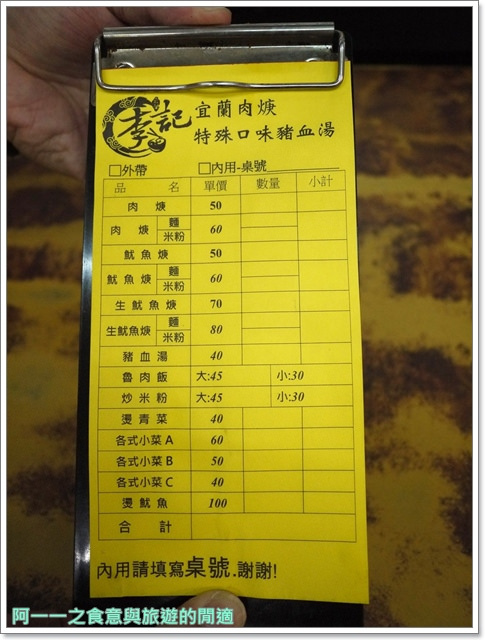 李記
宜蘭肉焿
特殊口味豬血湯
□外帶 □內用-桌號
品 名 單價 數量 小計
肉 焿 50
肉 焿 麵 米粉 60
魷魚焿 50
魷魚焿 麵 米粉 60
生魷魚焿 70
生魷魚焿 麵 米粉 80
豬血湯 40
魯肉飯 大:45 小:30
炒米粉 大:45 小:30
燙青菜 40
各式小菜A 60
各式小菜B 50
各式小菜C 40
燙魷魚 100
合 計
內用請填寫桌號.謝謝!
阿一一之食意與旅遊的閒適